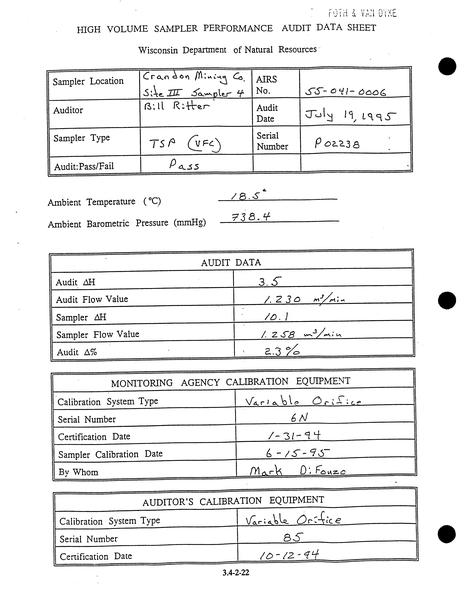 FOTH & VAN DYKE
HIGH VOLUME SAMPLER PERFORMANCE AUDIT DATA SHEET
Wisconsin Department of Natural Resources
Sampler Location Crandon Mining Co. Site III Sampler 4 AIRS No. 55-041-0006
Auditor Bill Ritter Audit Date July 19, 1995
Sampler Type TSP (VFC) Serial Number P02238
Audit:Pass/Fail Pass
Ambient Temperature (°C) 18.5°
Ambient Barometric Pressure (mmHg) 738.4
AUDIT DATA
Audit ΔH 3.5
Audit Flow Value 1.230 m³/min
Sampler ΔH 10.1
Sampler Flow Value 1.258 m³/min
Audit Δ% 2.3%
MONITORING AGENCY CALIBRATION EQUIPMENT
Calibration System Type Variable Orifice
Serial Number 6N
Certification Date 1-31-94
Sampler Calibration Date 6-15-95
By Whom Mark DiFonzo
AUDITOR'S CALIBRATION EQUIPMENT
Calibration System Type Variable Orifice
Serial Number 85
Certification Date 10-12-94
3.4-2-22